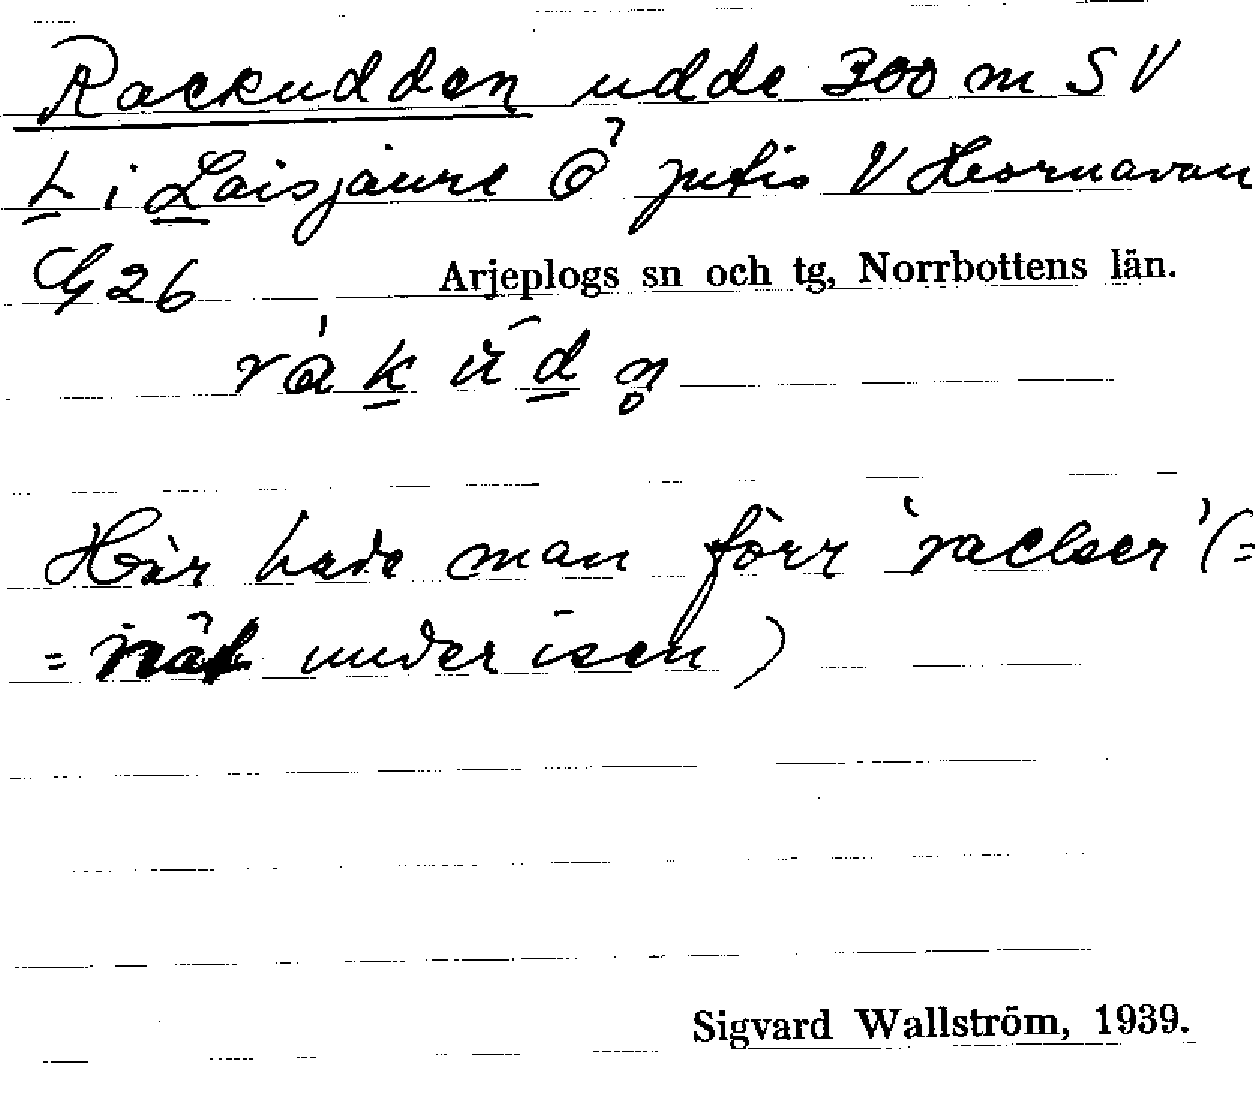 Rackudden udde 300 m SV
L i Laisjaure Ö Jutis V Hornavan
G 26 Arjeplogs sn och tg, Norrbottens län.
Här hade man förr 'rackser' (=
= nät under isen)
Sigvard Wallström, 1939.